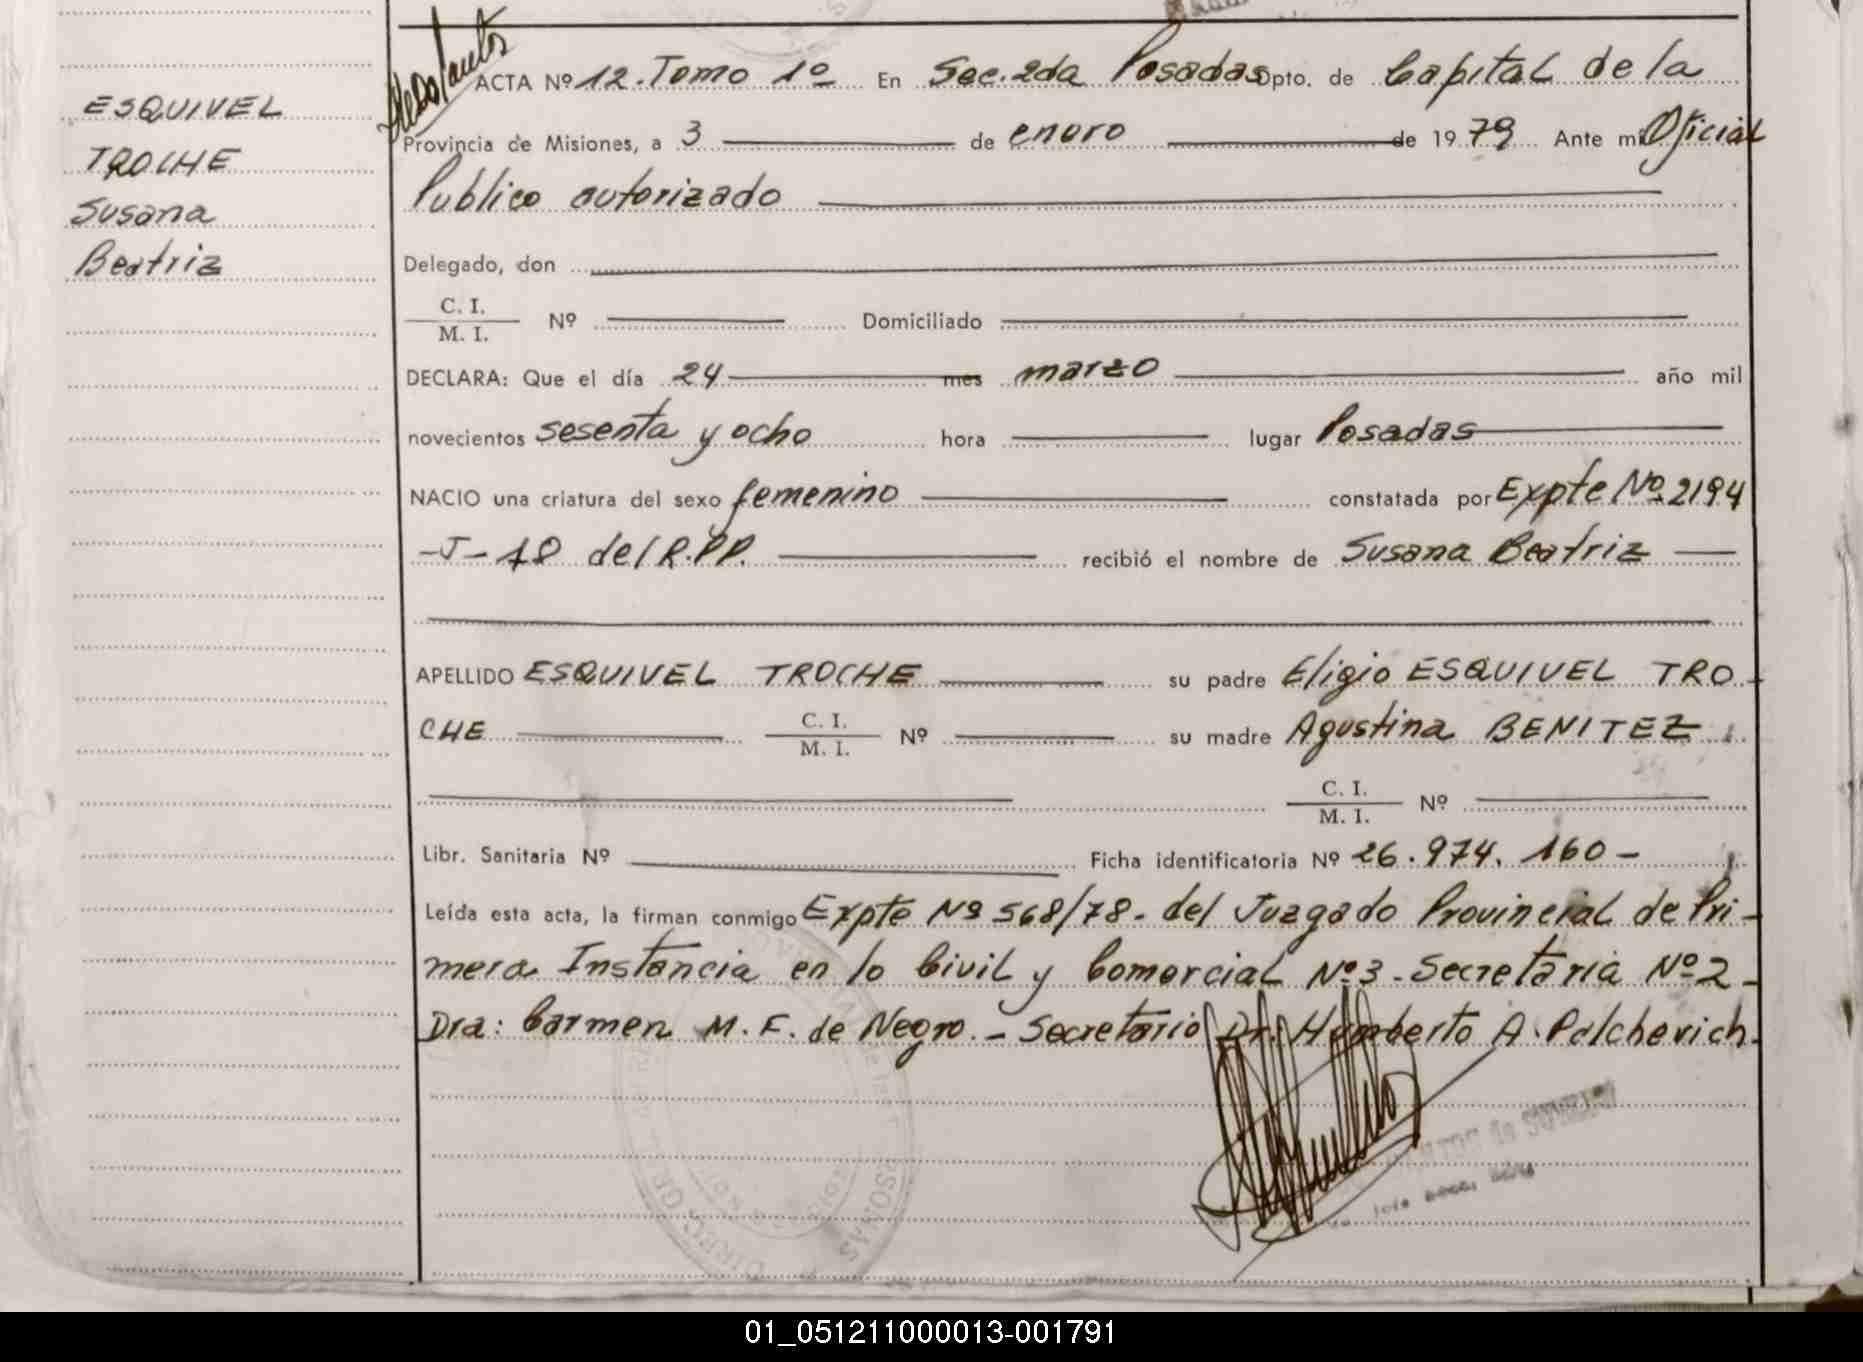 ESQUIVEL
TROCHE
Susana
Beatriz
ACTA Nº 12. Tomo 1º En Sec. 2da Posadas Dpto. de Capital de la
Provincia de Misiones, a 3 de enero de 1979 Ante mi Oficial
Publico autorizado
Delegado, don
C. I.
M. I. Nº Domiciliado
DECLARA: Que el día 24 mes marzo año mil
novecientos sesenta y ocho hora lugar Posadas
NACIO una criatura del sexo femenino constatada por Expte Nº 2194
-J-78 del R.PP. recibió el nombre de Susana Beatriz
APELLIDO ESQUIVEL TROCHE su padre Eligio ESQUIVEL TRO-
CHE C. I. M. I. Nº su madre Agustina BENITEZ
C. I. M. I. Nº
Libr. Sanitaria Nº Ficha identificatoria Nº 26.974.160-
Leída esta acta, la firman conmigo Expte Nº 568/78- del Juzgado Provincial de Pri-
mera Instancia en lo Civil y Comercial Nº 3- Secretaria Nº 2-
Dra: Carmen M. F. de Negro.- Secretario Dr. Humberto A. Palchevich.
01_051211000013-001791